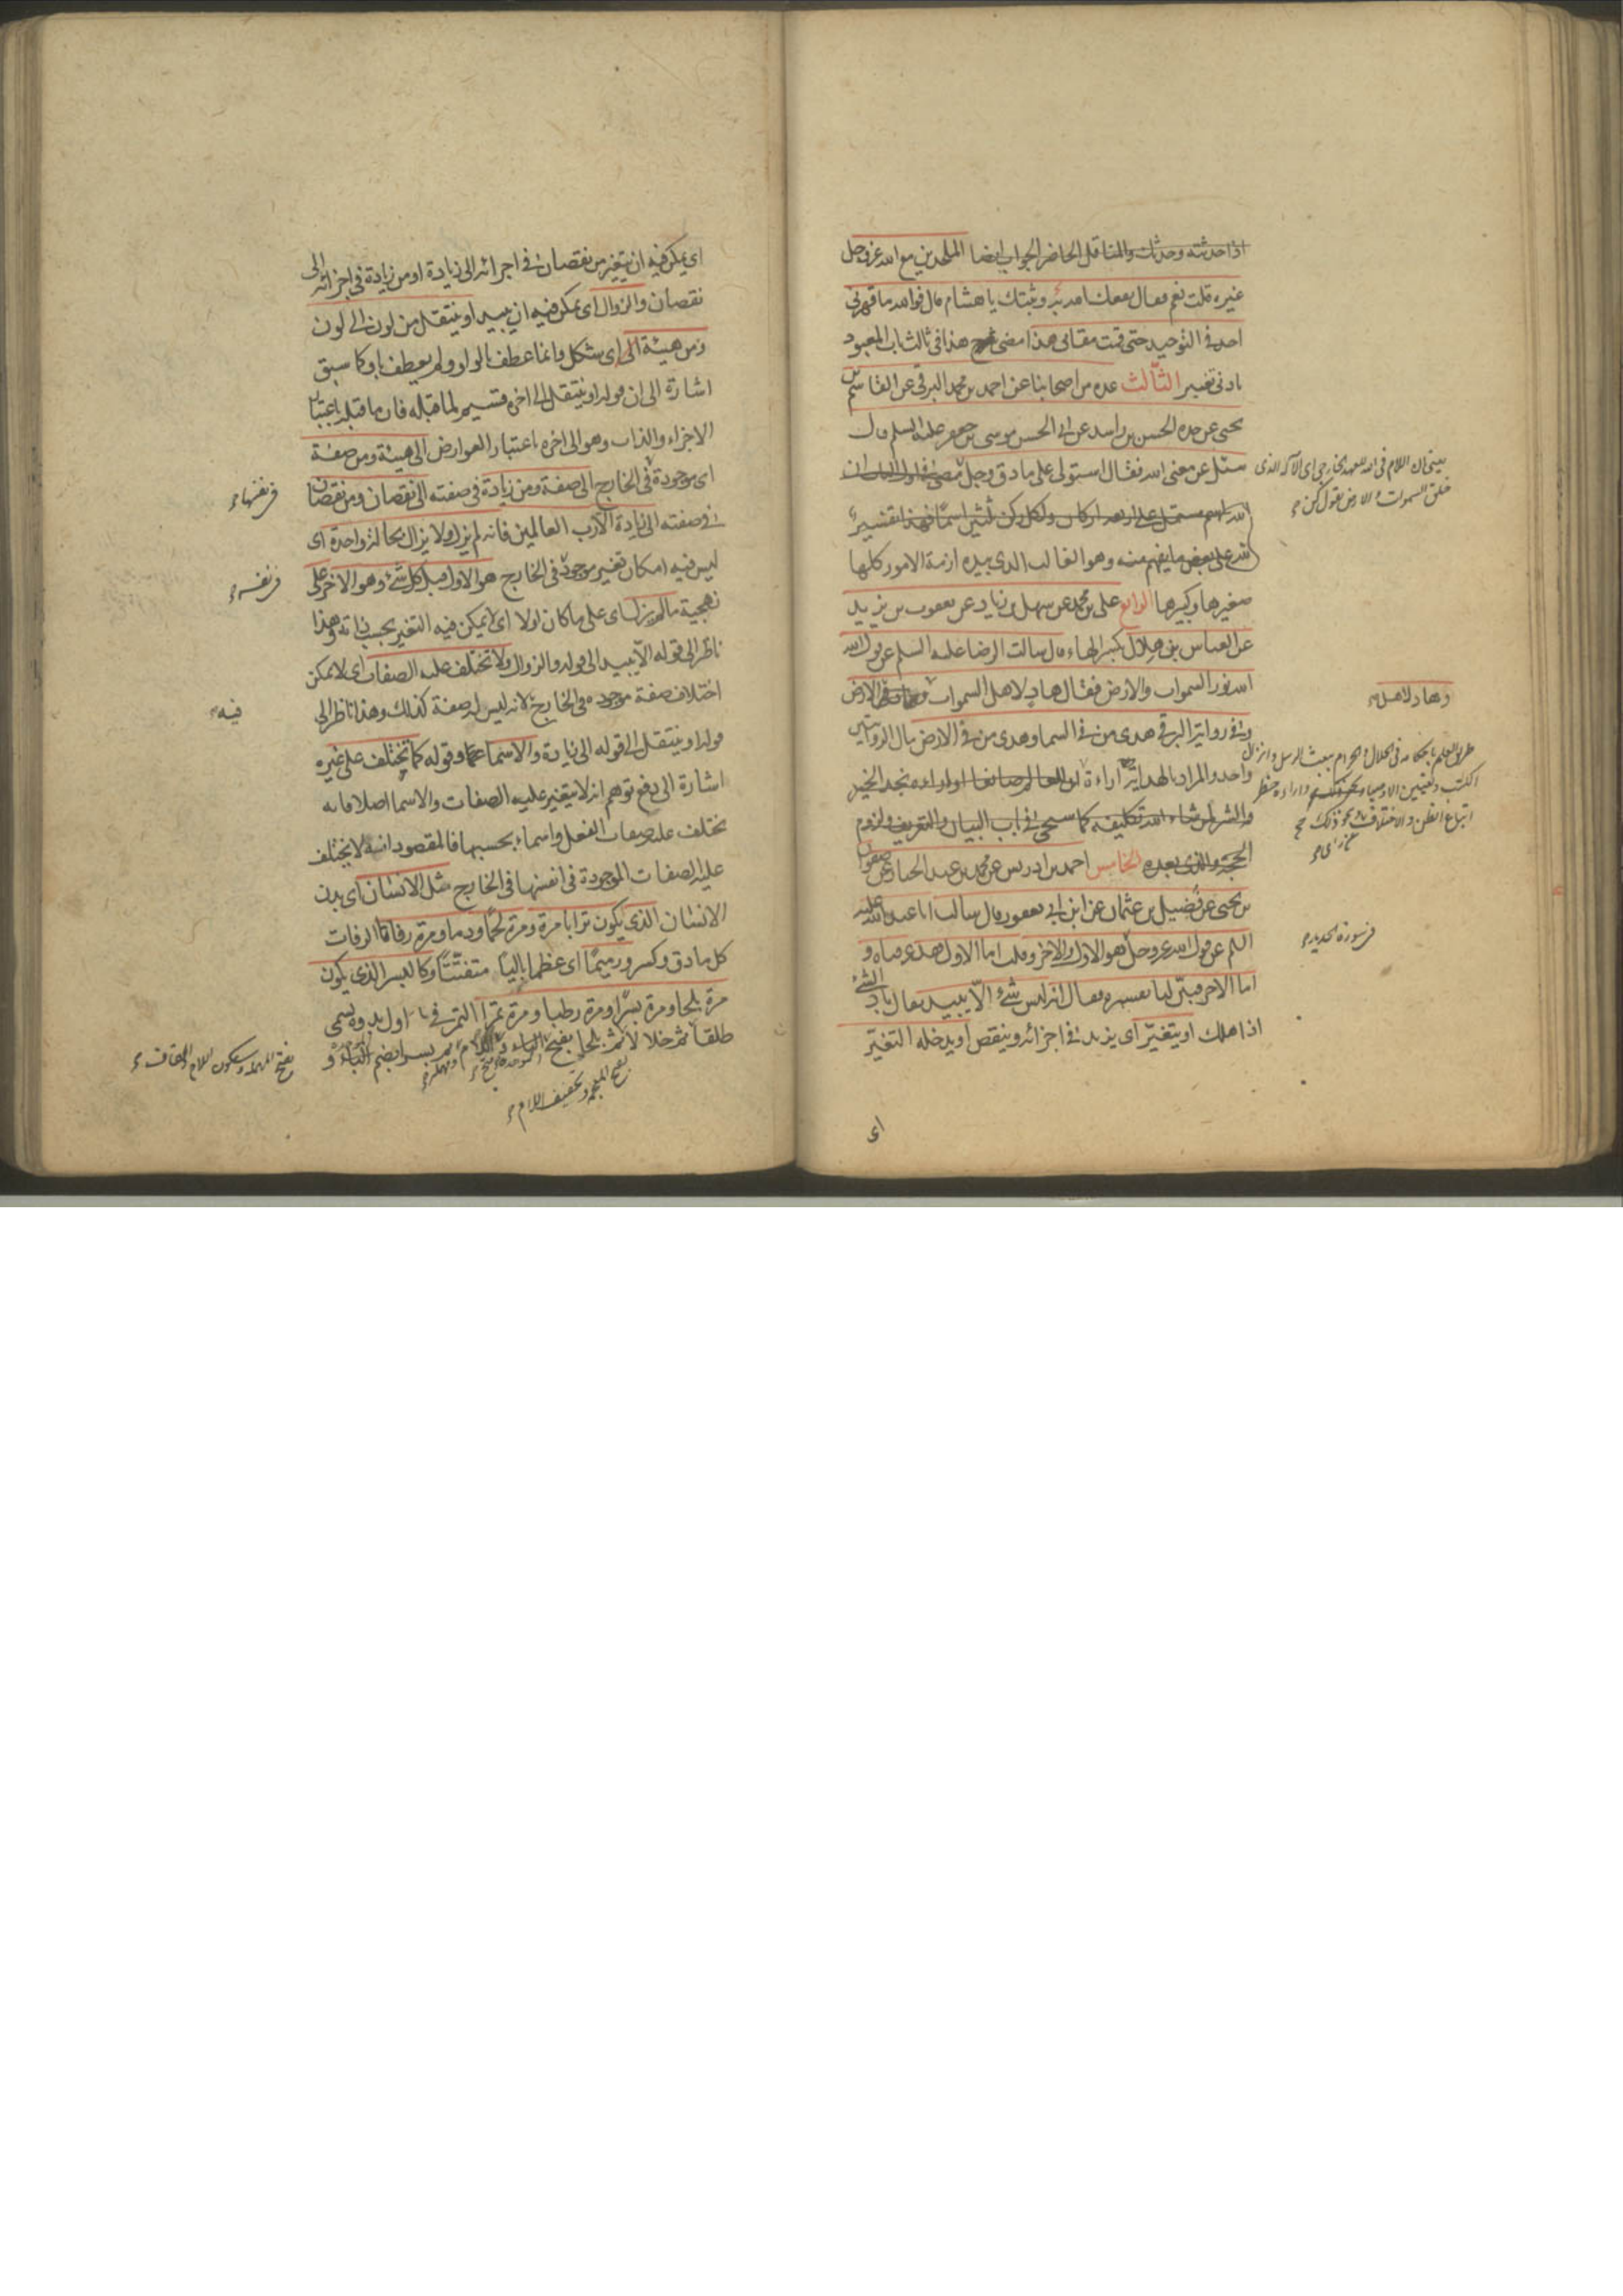 اذا حدثته وحدثك والمناقل الحاضر الجواب ايضا الملحدين مع الله عز وجل
غيره قلت نعم فقال نفعك الله به وثبتك يا هشام قال فوالله ما قهرنى
احد فى التوحيد حتى قمت مقامى هذا مضى هذا فى ثالث باب المعبود
بادنى تغيير الثالث عدة من اصحابنا عن احمد بن محمد البرقى عن القاسم بن
يحيى عن جده الحسن بن راشد عن ابى الحسن موسى بن جعفر عليه السلم قال
سئل عن معنى الله فقال استولى على ما دق وجل
الله اسم مشتمل على اربعة اركان ولكل ركن ثلثين اسما فهذا تفسير
الله على بعض ما يفهم منه وهو الغالب الذى بيده ازمة الامور كلها
صغيرها وكبيرها الرابع على بن محمد عن سهل بن زياد عن يعقوب بن يزيد
عن العباس بن هلال بكسر الهاء قال سالت الرضا عليه السلم عن قول الله
الله نور السموات والارض فقال هاد لاهل السموات الارض
وفى رواية البرقى هدى من فى السما وهدى من فى الارض مآل الروايتين
واحد والمراد بالهداية اراءة
والشر لمن شاء الله تكليفه كما سيجى فى باب البيان والتعريف ولزوم
الحجة والذى بعده الخامس احمد بن ادريس عن محمد بن عبد الجبار عن صفوان
بن يحيى عن فضيل بن عثمان عن ابن ابى يعفور قال سالت ابا عبد الله عليه
السلم عن قول الله عز وجل هو الاول والاخر وقلت اما الاول فقد عرفناه و
اما الاخر فبين لنا تفسيره فقال انه ليس شئ الا يبيد يقال باد الشئ
اذا هلك او يتغير اى يزيد فى اجزائه وينقص او يدخله التغير
اى
يعنى ان اللام فى الله للعهد الخارجى اى الاله الذى
خلق السموات والارض بقول كن
وهاد لاهل
طريق العلم باحكامه فى الحلال والحرام ببعث الرسل وانزال
الكتب وتعيين الاوصياء
اتباع الظن والاختلاف ونحو ذلك
فى سورة الحديد
اى يمكن فيه ان يتغير من نقصان فى اجزائه الى زيادة او من زيادة فى اجزائه الى
نقصان والزوال اى يمكن فيه ان يبيد او ينتقل من لون الى لون
ومن هيئة الى اى شكل وانما عطف بالواو ولم يعطف باو كما سبق
اشارة الى ان قوله او ينتقل الى اخره قسيم لما قبله فان ما قبله باعتبار
الاجزاء والذات وهو الى اخره باعتبار العوارض الى هيئة ومن صفة
اى موجودة فى الخارج الى صفة ومن زيادة فى صفته الى نقصان ومن نقصان
فى صفته الى زيادة الا رب العالمين فانه لم يزل ولا يزال بحالة واحدة اى
ليس فيه امكان تغير موجود فى الخارج هو الاول قبل كل شئ وهو الاخر على
ما لم يزل اى على ما كان اولا اى لا يمكن فيه التغير بحسب ذاته وهذا
ناظر الى قوله الا يبيد الى قوله والزوال ولا تختلف عليه الصفات اى لا يمكن
اختلاف صفة موجودة فى الخارج لانه ليس له صفة كذلك وهذا ناظر الى
قوله او ينتقل الى قوله الى زيادة والاسما وقوله كما تختلف على غيره
اشارة الى دفع توهم انه لا يتغير عليه الصفات والاسما اصلا فانه
يختلف عليه صفات الفعل واسماء بحسبها فالمقصود انه لا يختلف
عليه الصفات الموجودة فى انفسها فى الخارج مثل الانسان اى بدن
الانسان الذى يكون ترابا مرة ومرة لحما ودما ومرة رفاتا الرفات
كل ما دق وكسر ورميما اى عظما باليا متفتتا وكالبسر الذى يكون
مرة بلحا ومرة بسرا ومرة رطبا ومرة تمرا التمر فى اول بدوه يسمى
طلقا ثم خلالا ثم بلحا بفتح الباء واللام ثم بسرا بضم الباء و
فى نفسها
فى نفسه
فيه
بفتح المهملة وسكون اللام والقاف
بفتح المعجمة وتخفيف اللام